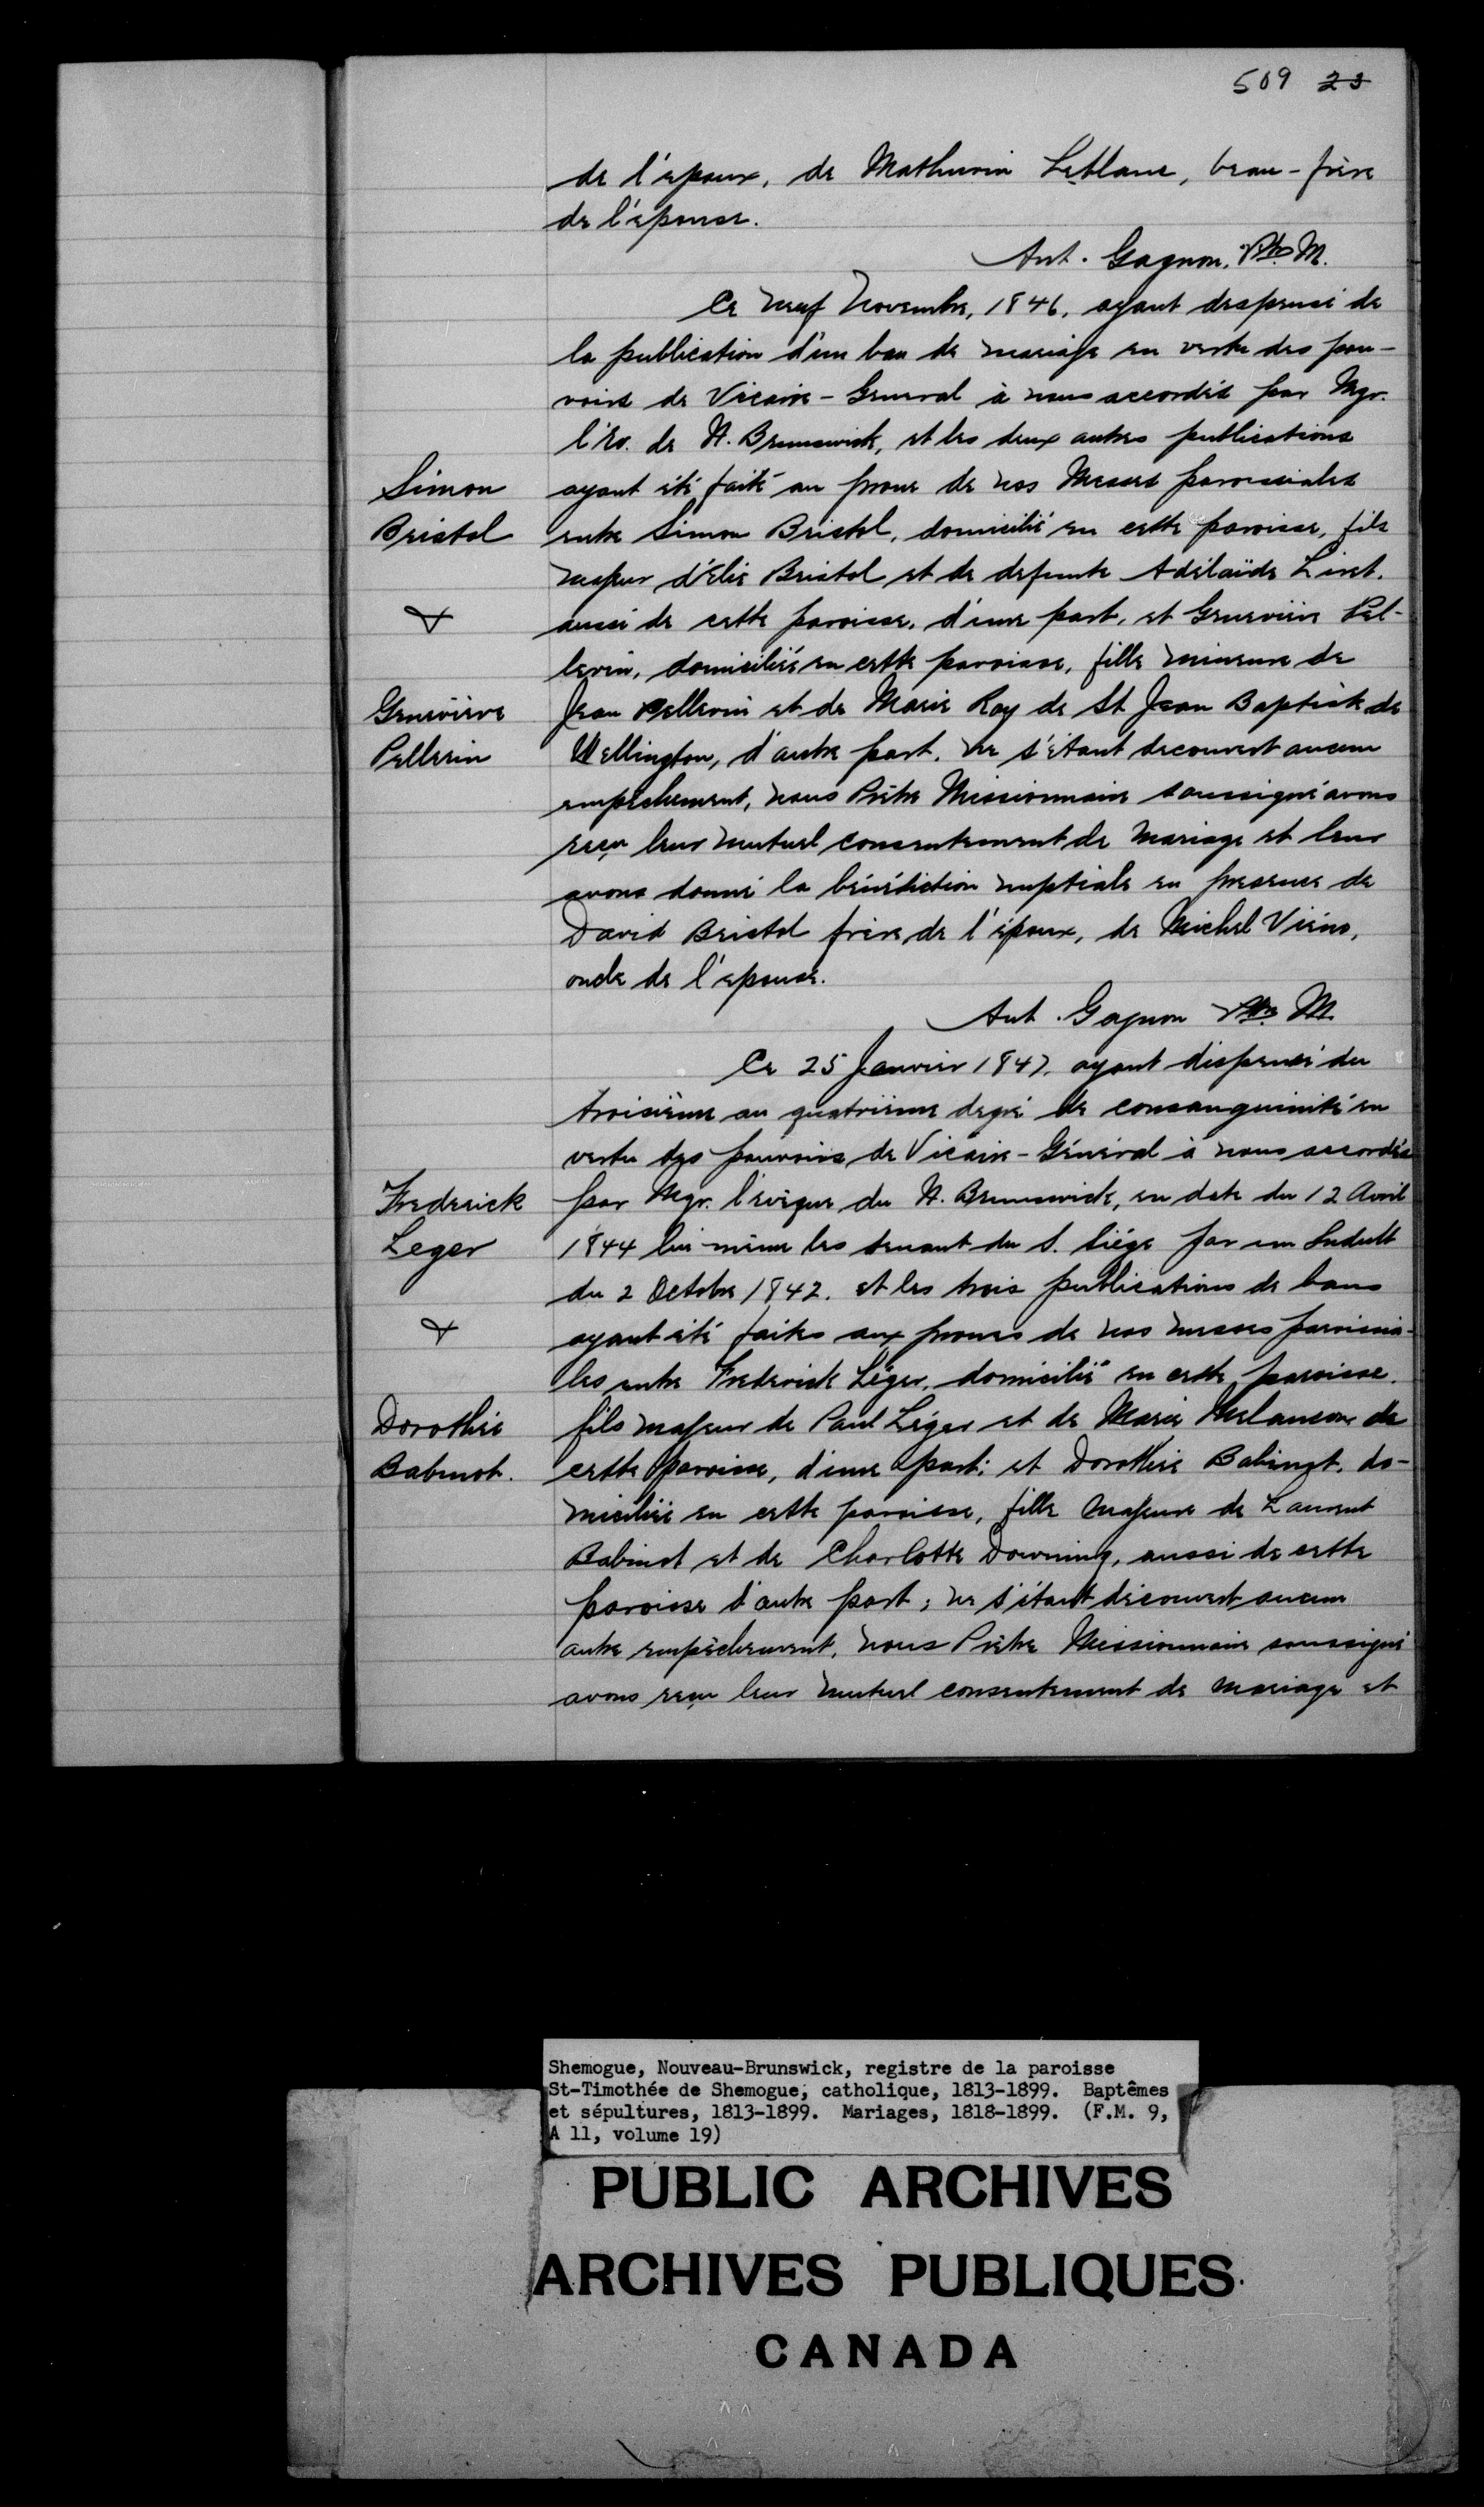 509 23
de l'epoux, de Mathurin Leblanc, beau-frère
de l'epouse.
Ant. Gagnon, Ptre M.
Ce neuf Novembre, 1846, ayant dispensé de
la publication d'un ban de mariage en vertu des pou-
voirs de Vicaire-General à nous accordés par Mgr.
l'Ev. de N. Brunswick, et les deux autres publications
Simon
ayant été faite au prone de nos Messes paroissiales
Bristol
entre Simon Bristol, domicilié en cette paroisse, fils
majeur d'Elie Bristol et de defunte Adélaïde Liret,
&
aussi de cette paroisse, d'une part, et Geneviève Pel-
lerin, domiciliée en cette paroisse, fille mineure de
Geneviève
Jean Pellerin et de Marie Roy de St Jean Baptiste de
Pellerin
Wellington, d'autre part. Ne s'étant decouvert aucun
empêchement, nous Prêtre Missionnaire soussigné avons
reçu leur mutuel consentement de mariage et leur
avons donné la bénédiction nuptiale en presence de
David Bristol frère de l'époux, de Michel
oncle de l'epouse.
Ant. Gagnon Ptre M.
Ce 25 Janvier 1847, ayant dispensé du
troisième au quatrième degré de consanguinité en
vertu des pouvoirs de Vicaire-Général à nous accordés
Frederick
par Mgr. l'evêque du N. Brunswick, en date du 12 Avril
Leger
1844 lui-même les tenant du S. Siége par un Indult
du 2 Octobre 1842. et les trois publications de bans
&
ayant été faites aux prones de nos messes paroissia-
les entre Frederick Léger, domicilié en cette paroisse,
Dorothée
fils majeur de Paul Léger et de Marie Melanson de
Babinot.
cette paroisse, d'une part; et Dorothée Babinot, do-
miciliée en cette paroisse, fille majeure de Laurent
Babinot et de Charlotte Downing, aussi de cette
paroisse d'autre part; ne s'étant découvert aucun
autre empêchement, nous Prêtre Missionnaire soussigné
avons reçu leur mutuel consentement de mariage et
Shemogue, Nouveau-Brunswick, registre de la paroisse
St-Timothée de Shemogue, catholique, 1813-1899. Baptêmes
et sépultures, 1813-1899. Mariages, 1818-1899. (F.M. 9,
A 11, volume 19)
PUBLIC ARCHIVES
ARCHIVES PUBLIQUES
CANADA